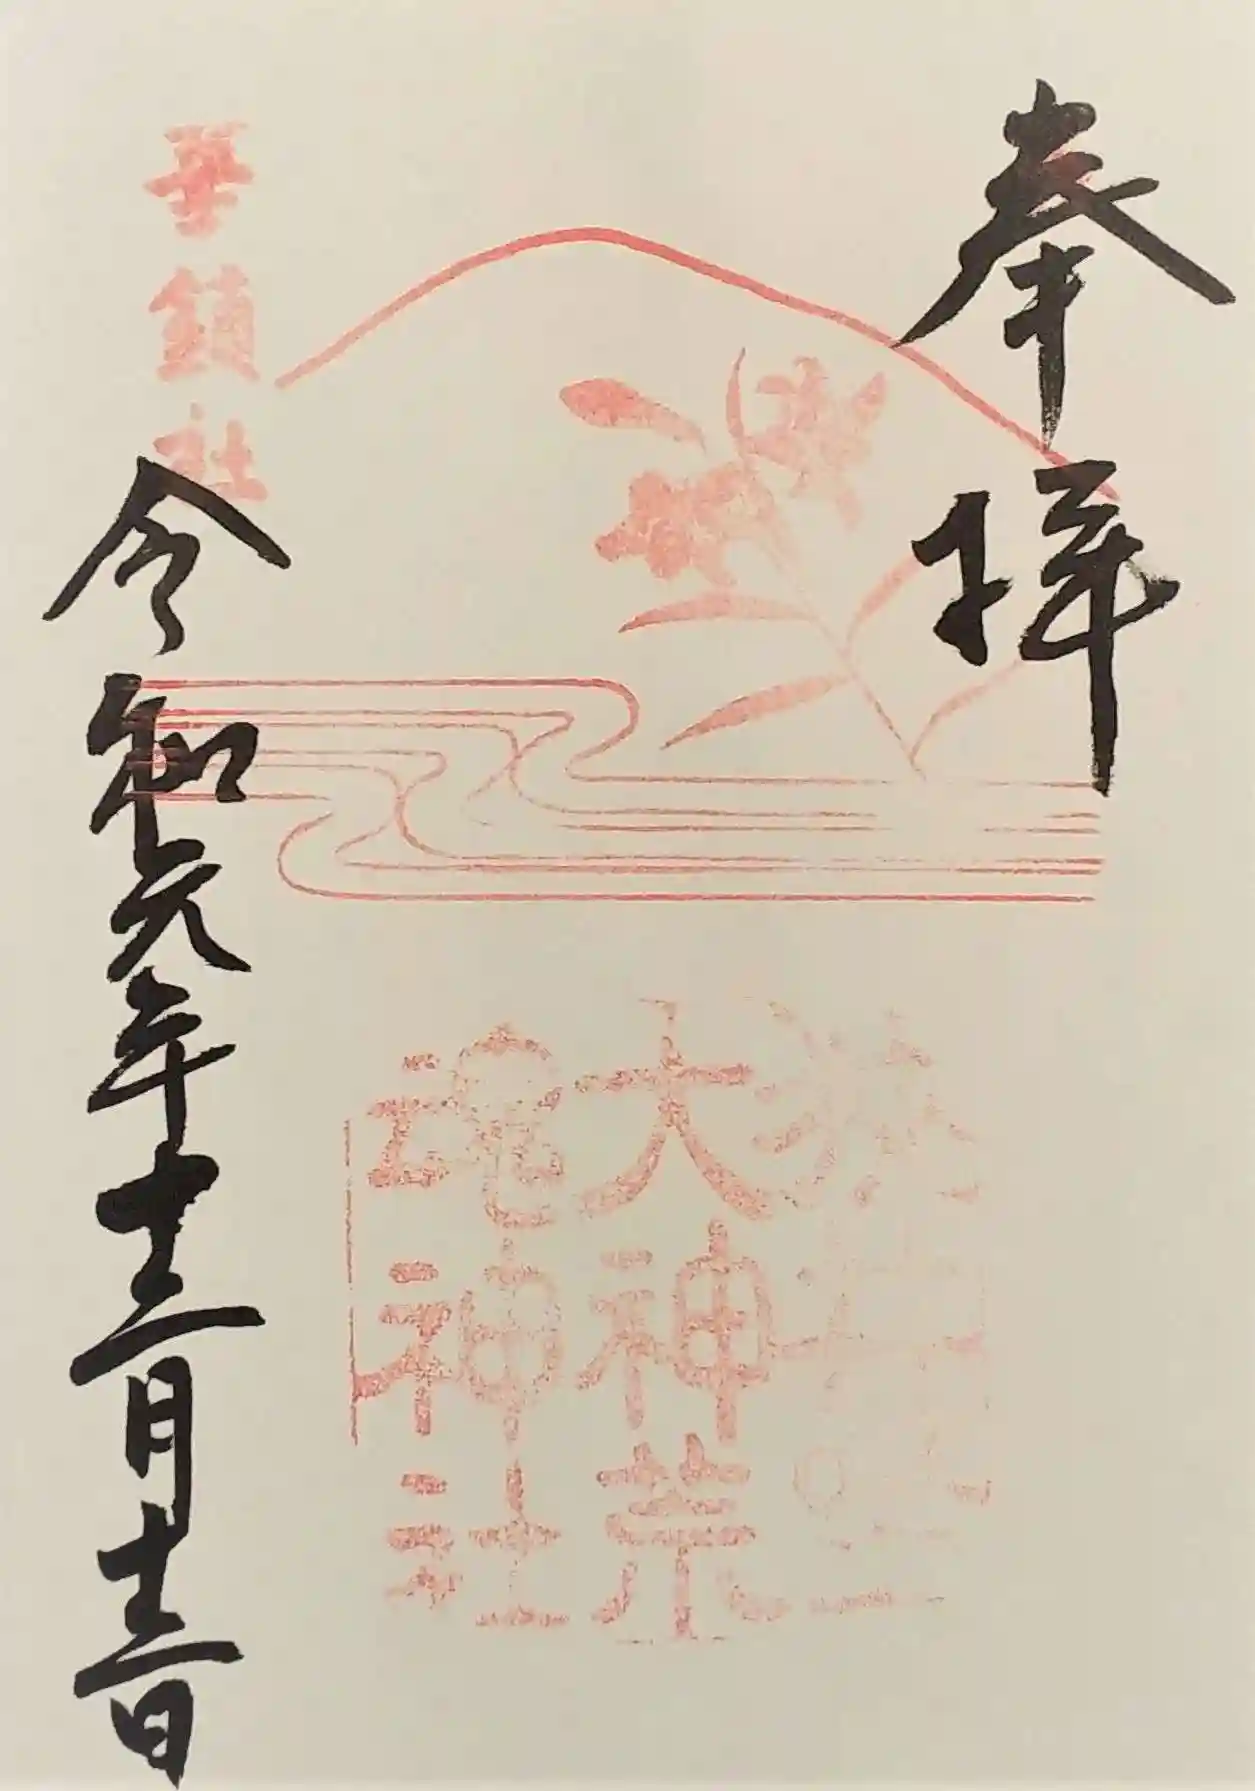 奉拝
狭井坐
大神荒
魂神社
華鎮社
令和元年十二月十二日